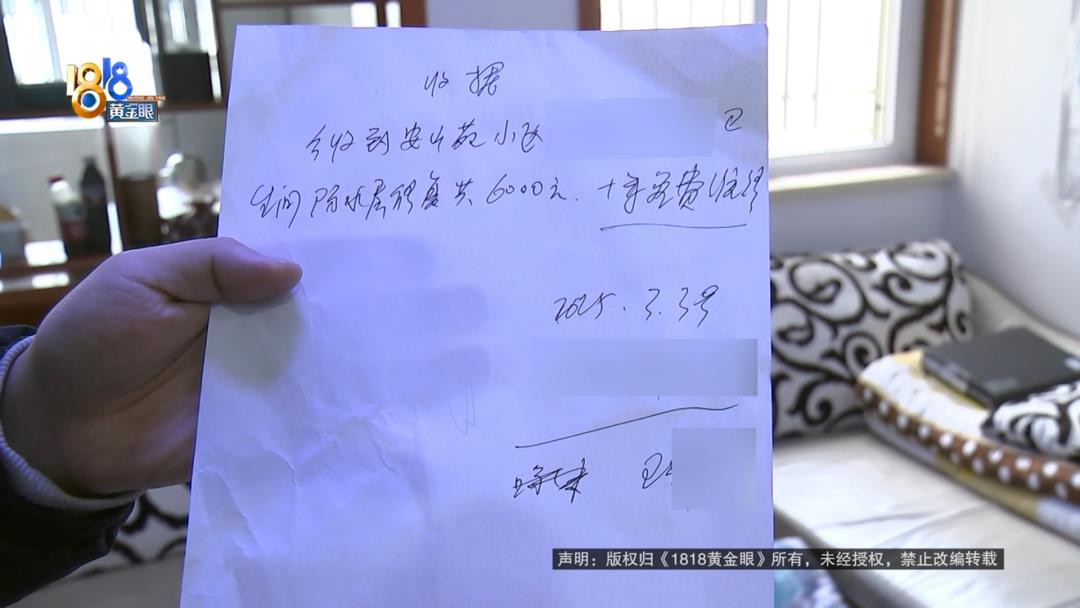 1818
黄金眼
收据
今收到安山苑小区 卫
生间防水层修复共6000元. 十年免费保修
2025.3.3号
声明：版权归《1818黄金眼》所有，未经授权，禁止改编转载